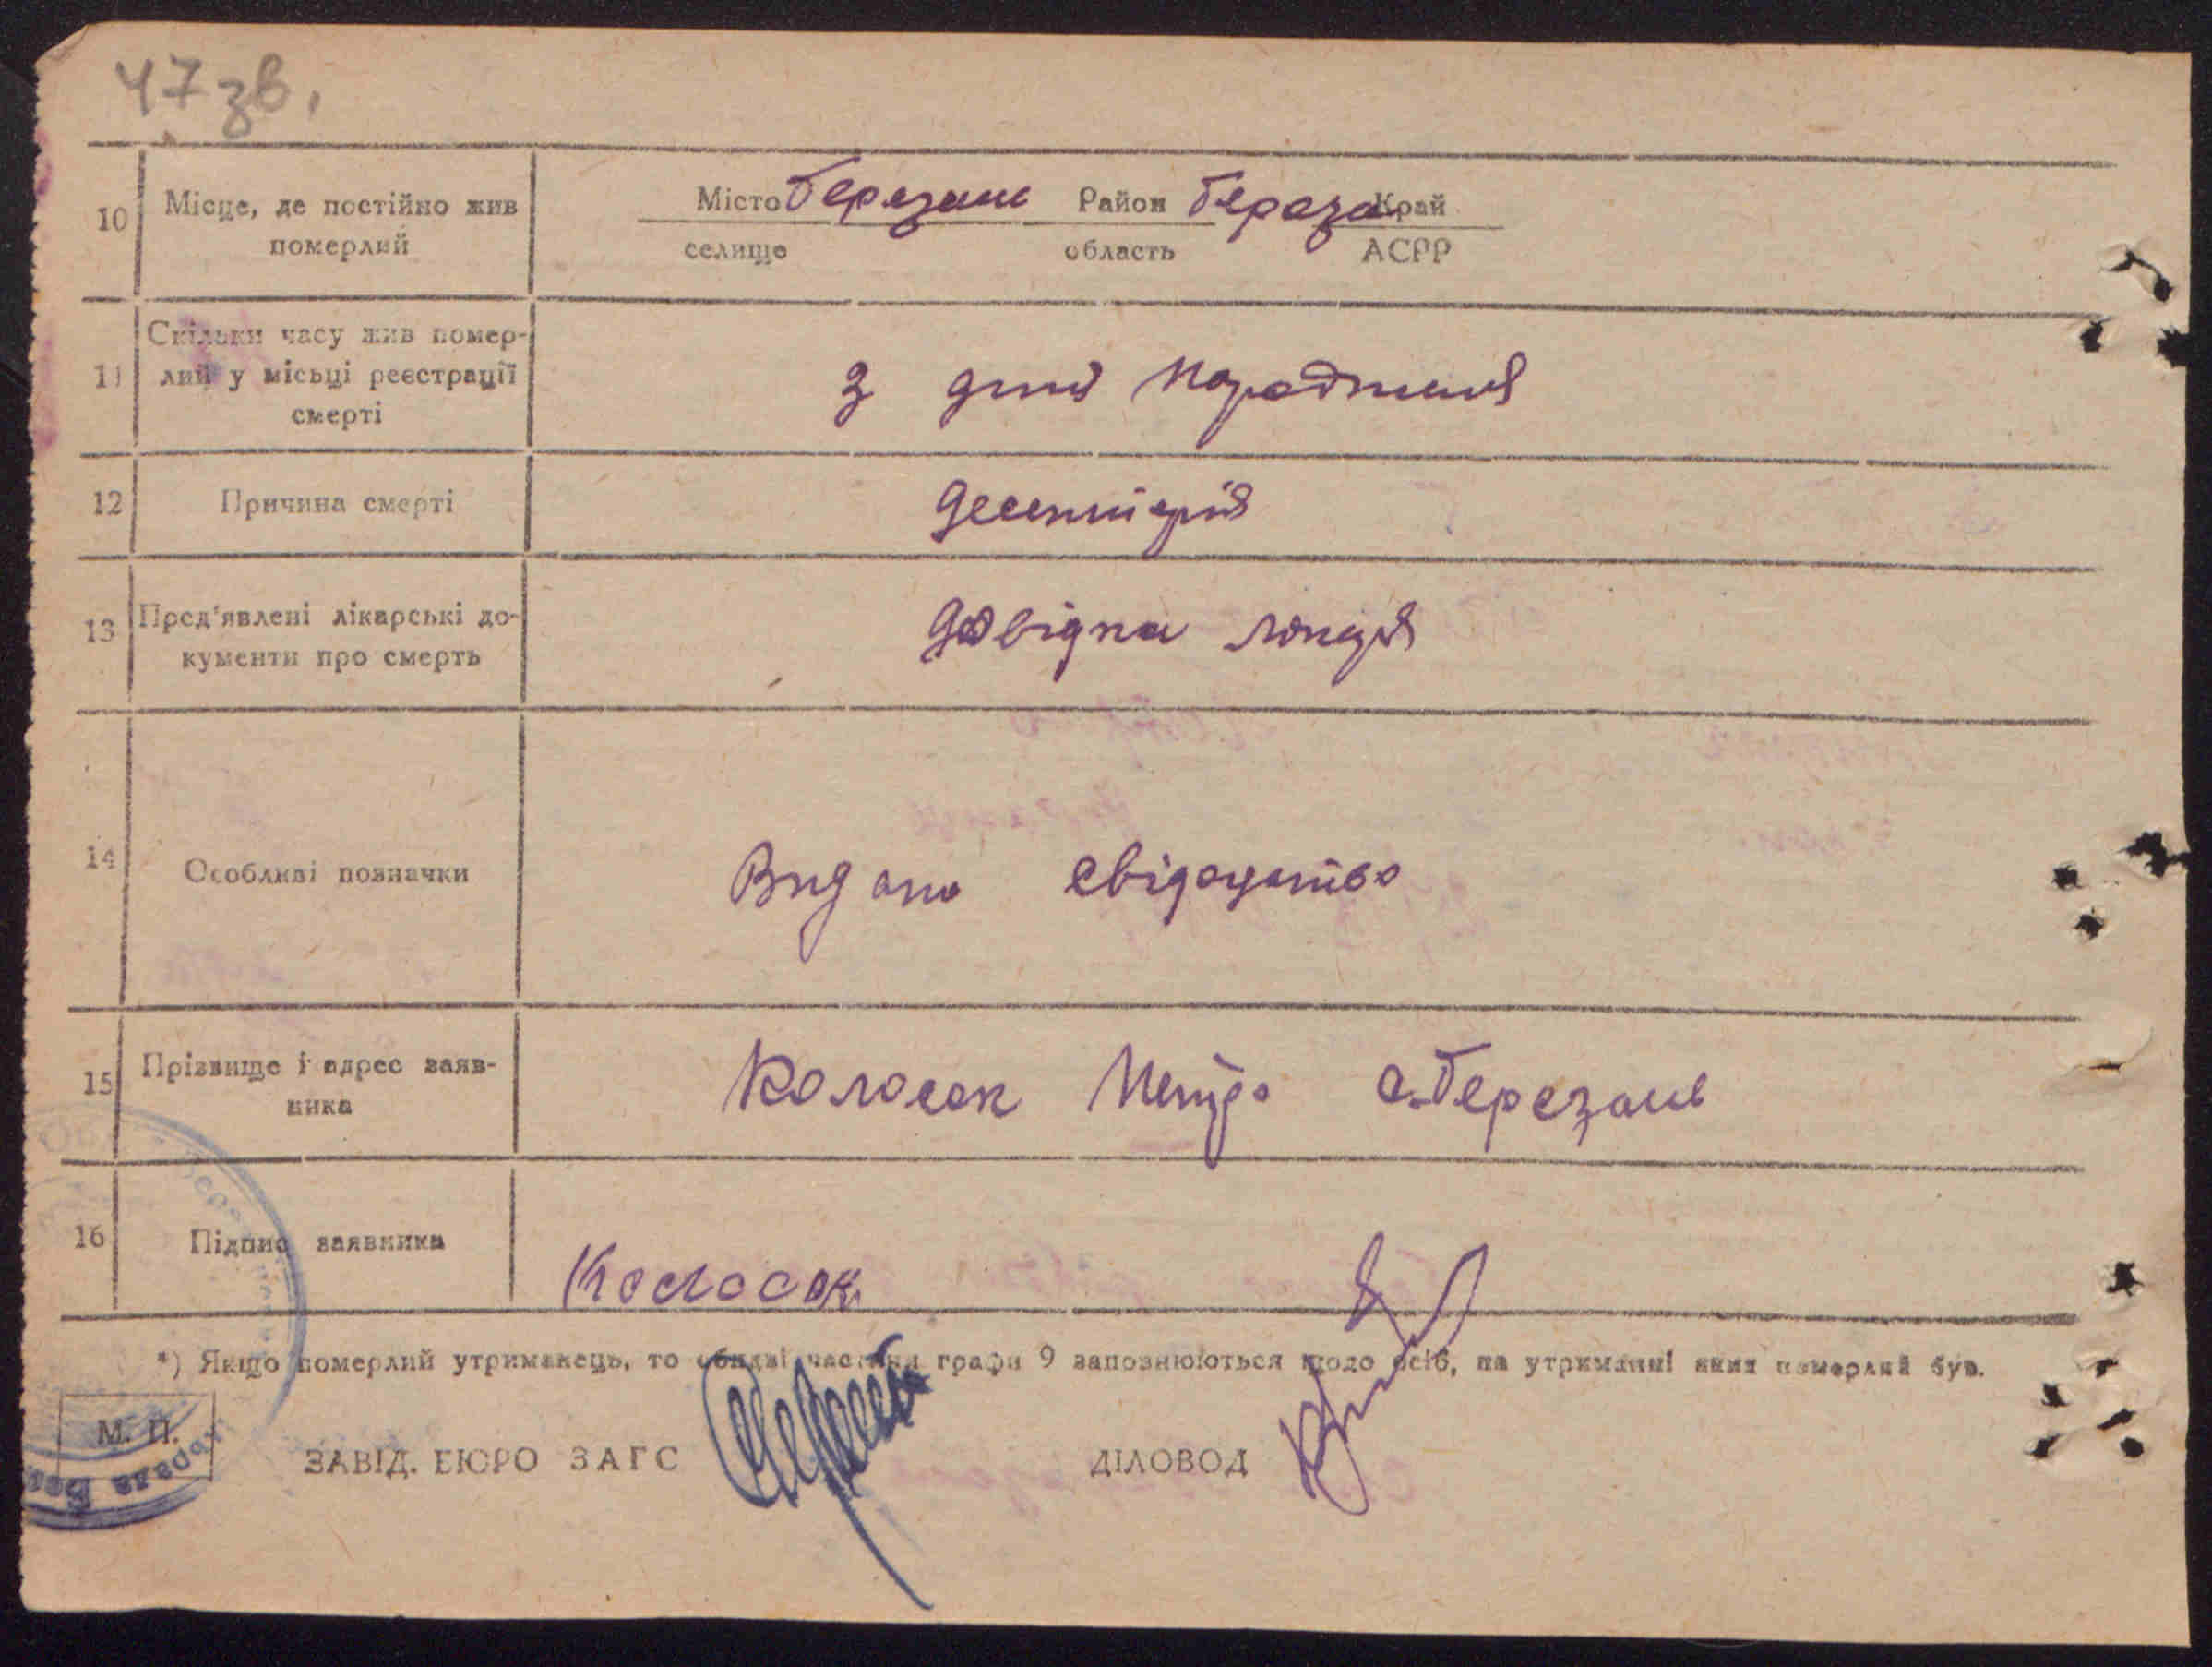 47 зв.
10 Місце, де постійно жив померлий
Місто Березань Район Береза Край
селище область АСРР
11 Скільки часу жив помер-
лий у місьці реєстрації
смерті
з дня народження
12 Причина смерті
десентерія
13 Пред'явлені лікарські до-
кументи про смерть
довідка лікаря
14 Особливі позначки
Видано свідоцтво
15 Прізвище і адрес заяв-
ника
Колосок Петро с. Березань
16 Підпис заявника
Колосок
*) Якщо померлий утриманець, то обидві частини графи 9 заповнюються щодо осіб, на утриманні яких померлий був.
М. П.
ЗАВІД. БЮРО ЗАГС ДІЛОВОД